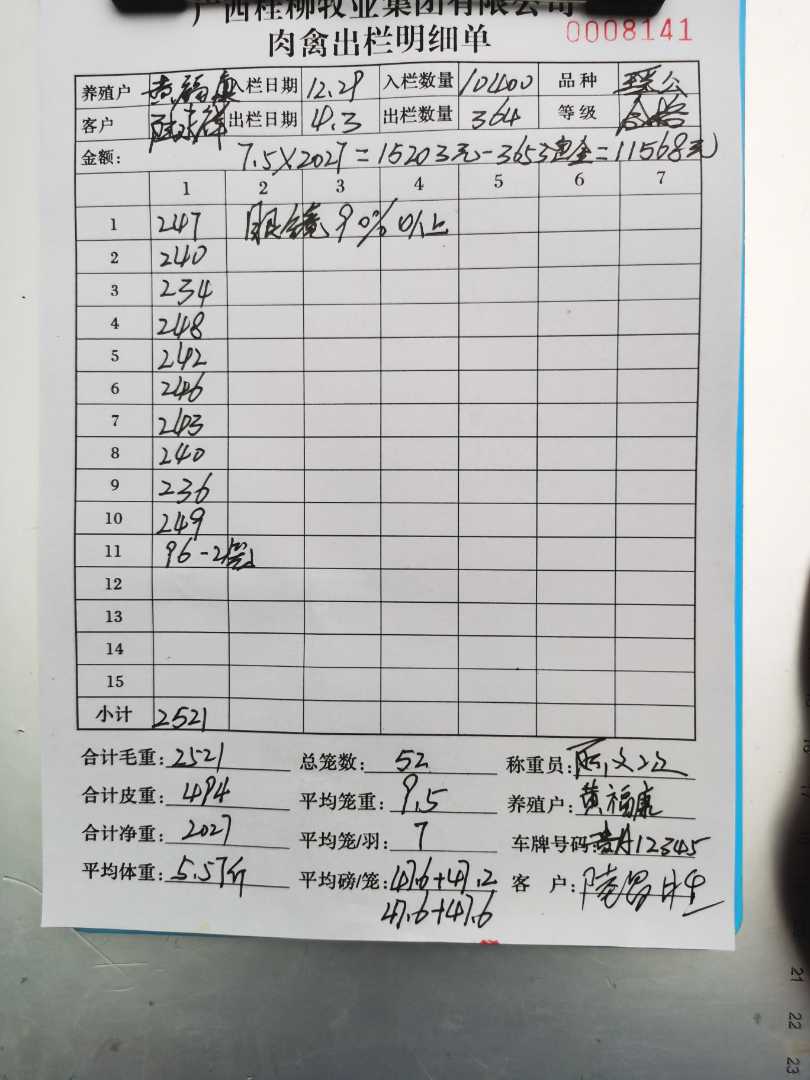 广西桂柳牧业集团有限公司
肉禽出栏明细单 0008141
养殖户 黄福康 入栏日期 12.29 入栏数量 10400 品种
客户 出栏日期 4.3 出栏数量 364 等级 合格
金额: 7.5×2027=15203元-3653定金=11568元
1 2 3 4 5 6 7
1 247 眼镜90%以上
2 240
3 234
4 248
5 242
6 246
7 243
8 240
9 236
10 249
11 96-2
12
13
14
15
小计 2521
合计毛重: 2521 总笼数: 52 称重员:
合计皮重: 494 平均笼重: 9.5 养殖户: 黄福康
合计净重: 2027 平均笼/羽: 7 车牌号码: A12345
平均体重: 5.57斤 平均磅/笼: 47.6+47.2 客户:
47.6+47.6
21
22
23